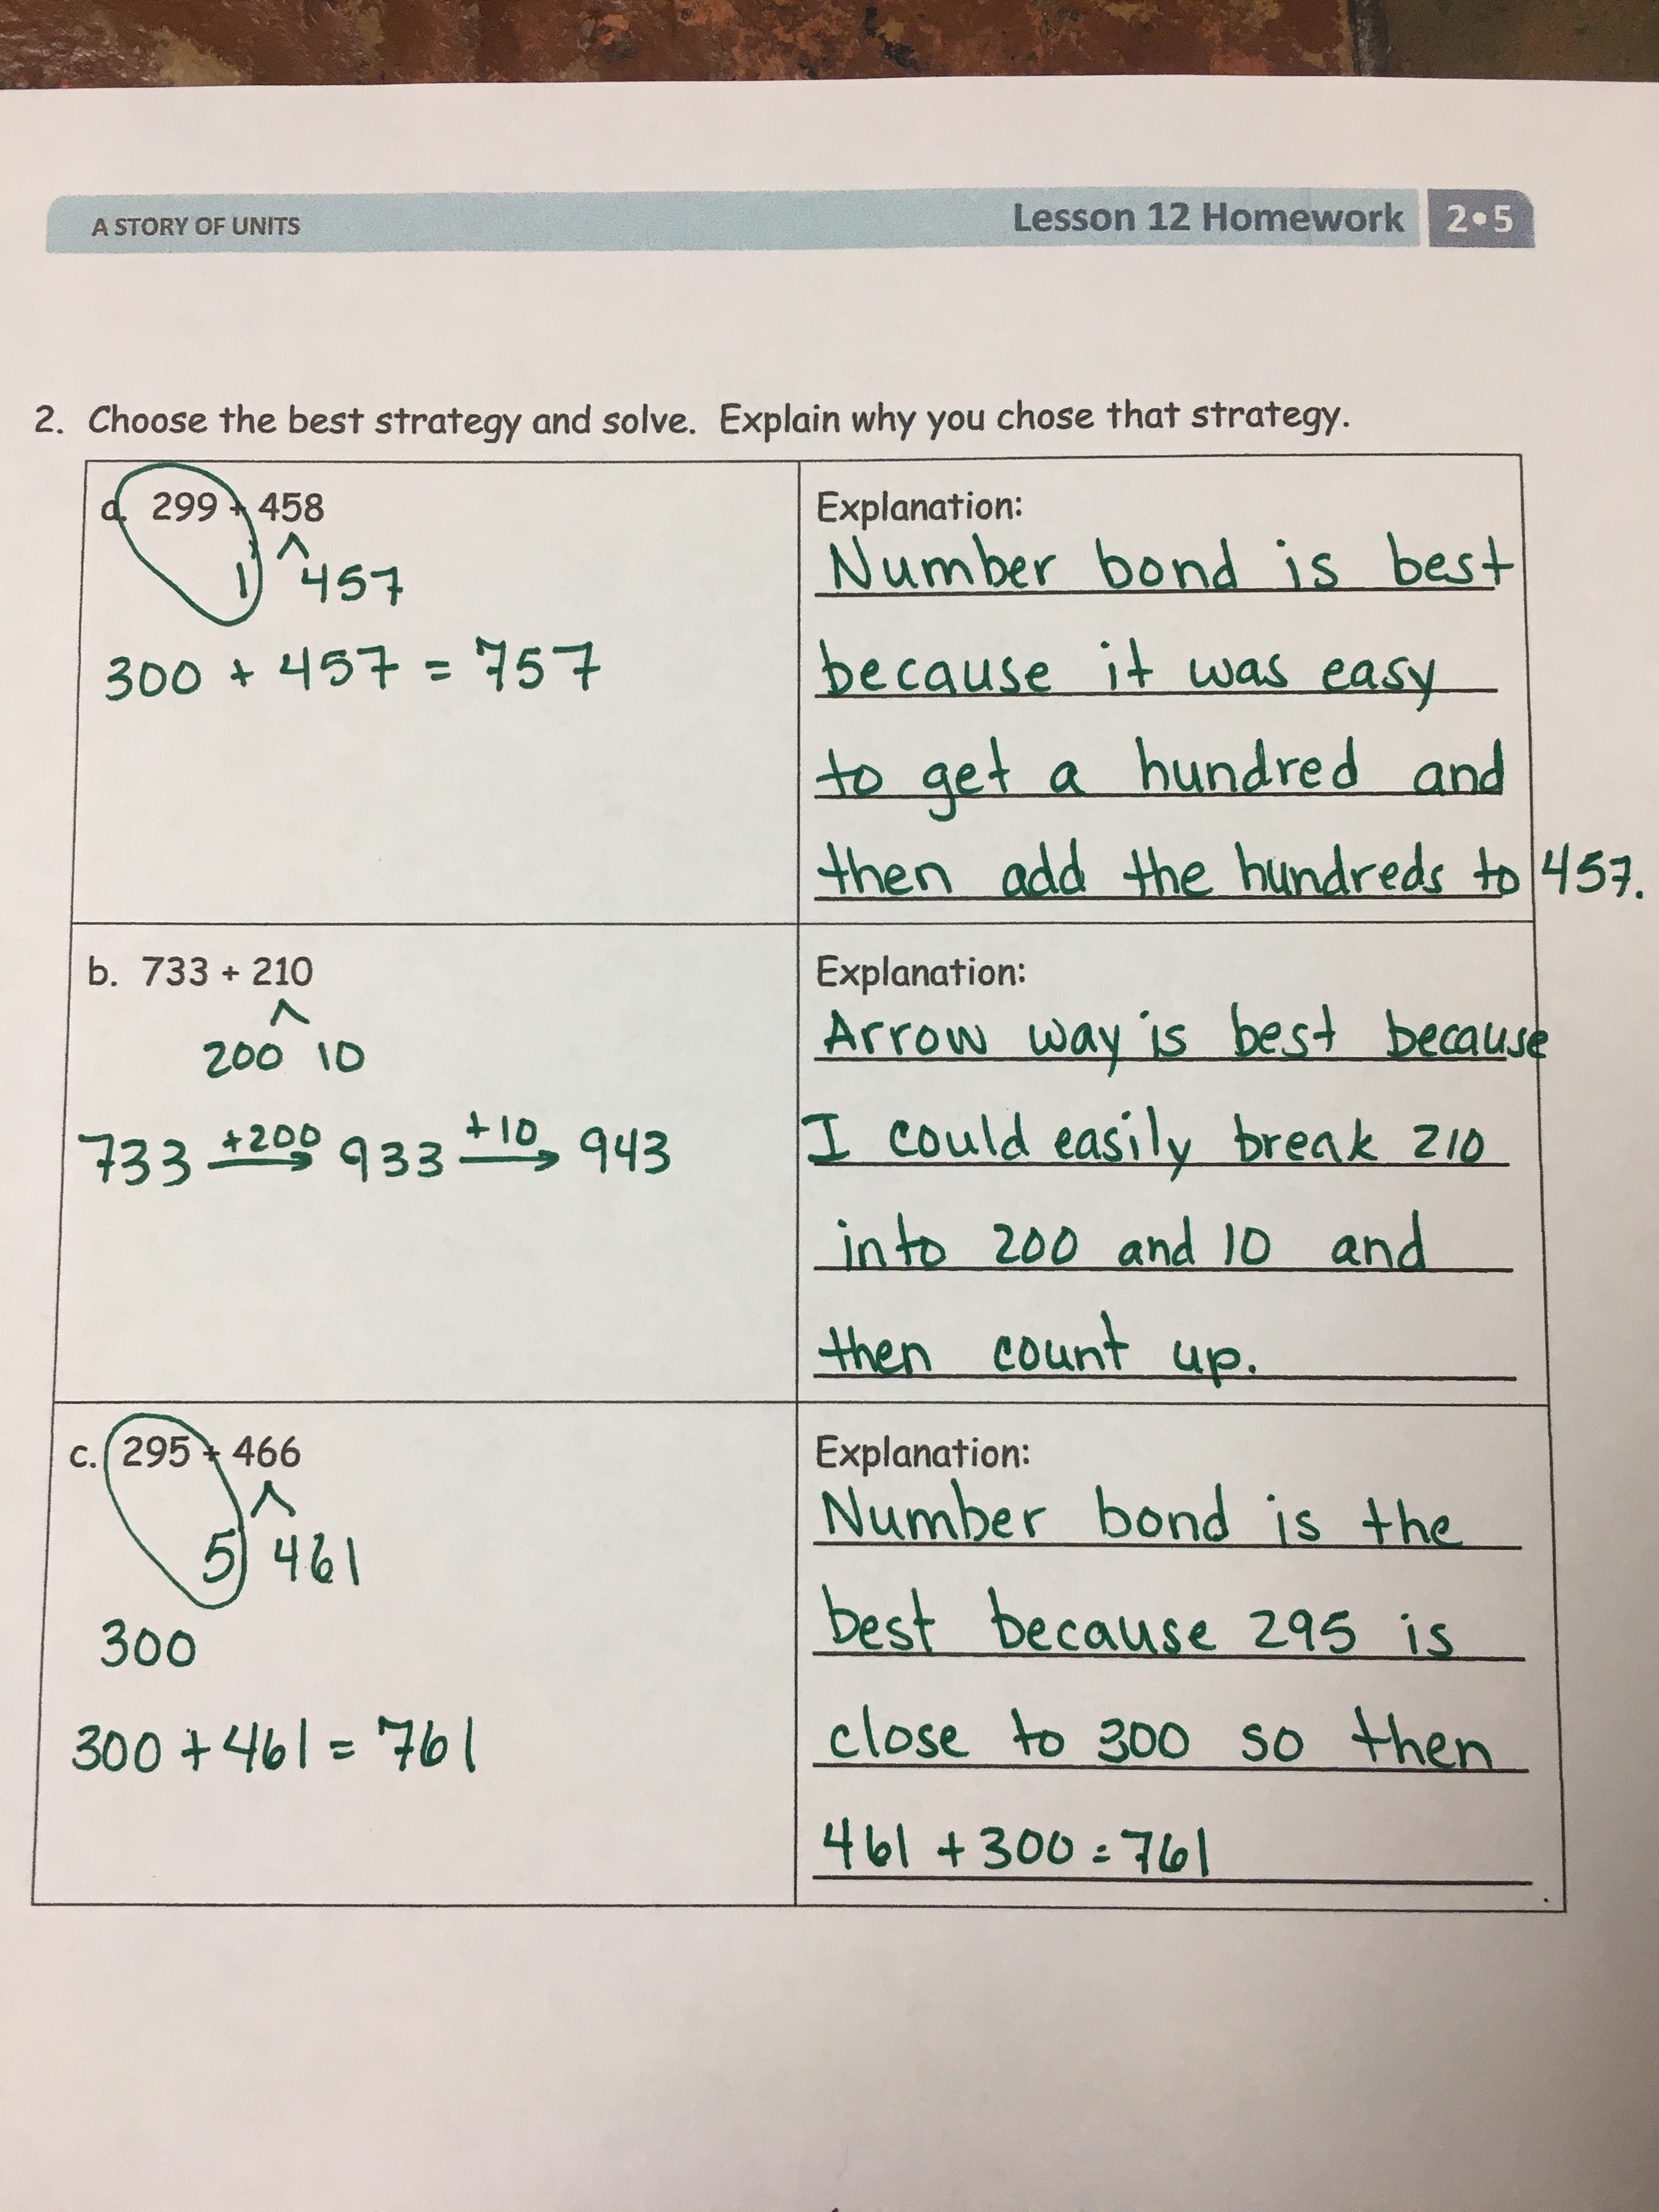 A STORY OF UNITS
Lesson 12 Homework 2•5
2. Choose the best strategy and solve. Explain why you chose that strategy.
a. 299 + 458
1 457
300 + 457 = 757
Explanation:
Number bond is best
because it was easy
to get a hundred and
then add the hundreds to 457.
b. 733 + 210
200 10
+200 +10
733 → 933 → 943
Explanation:
Arrow way is best because
I could easily break 210
into 200 and 10 and
then count up.
c. 295 + 466
5 461
300
300 + 461 = 761
Explanation:
Number bond is the
best because 295 is
close to 300 so then
461 + 300 = 761